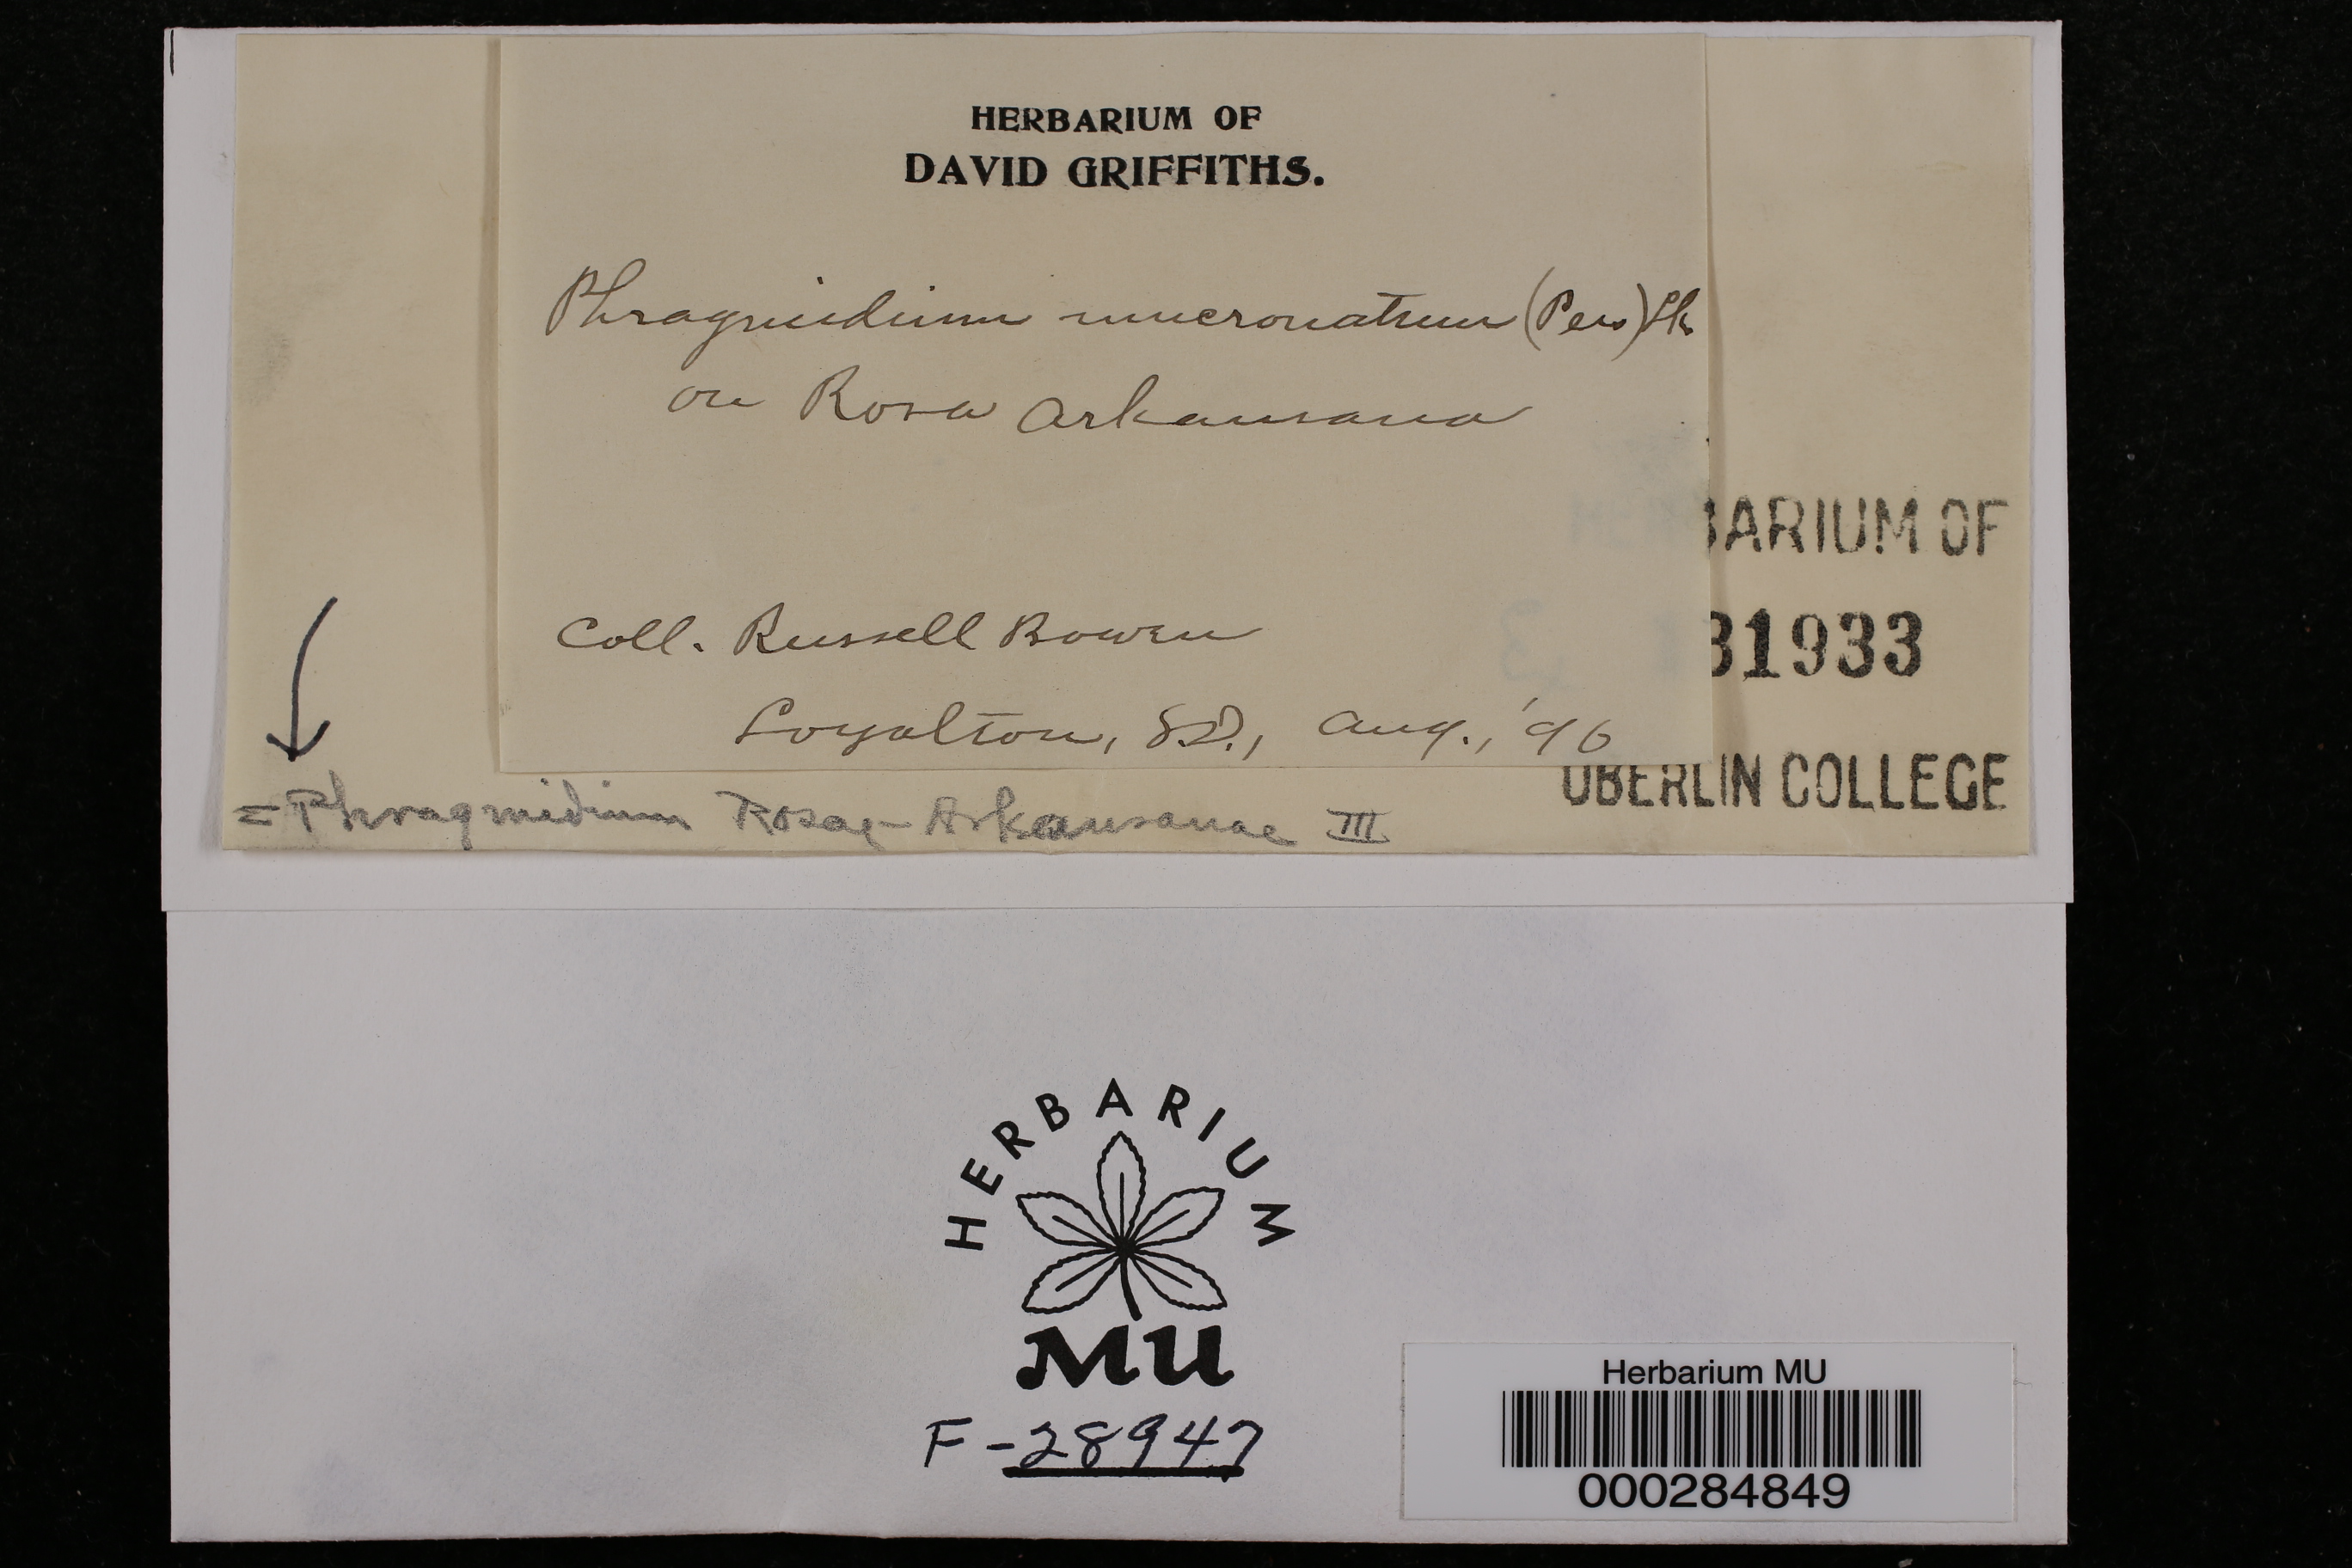 HERBARIUM OF
DAVID GRIFFITHS.
Phragmidium mucronatum (Pers) Lk
on Rosa Arkansana
BARIUM OF
31933
Coll. Russell Bowen
Loyalton, S.D., Aug., '96
OBERLIN COLLEGE
= Phragmidium Rosae-Arkansanae III
HERBARIUM
MU
F-28947
Herbarium MU
000284849